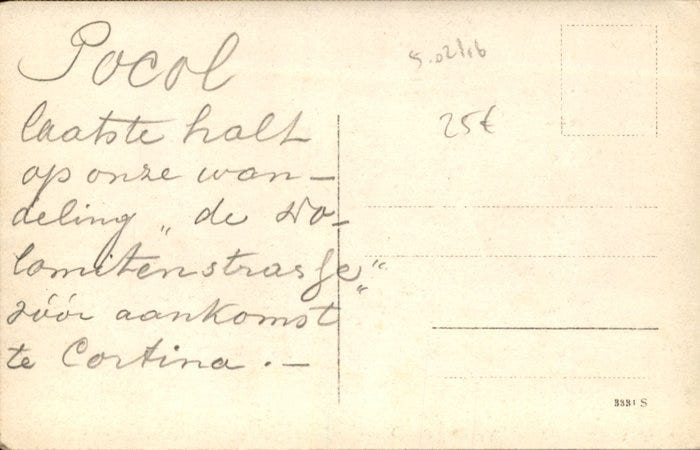 Pocol
laatste halt
op onze wan-
deling „ de Do-
lomitenstrasse"
vóór aankomst
te Cortina . —
25€
3331 S